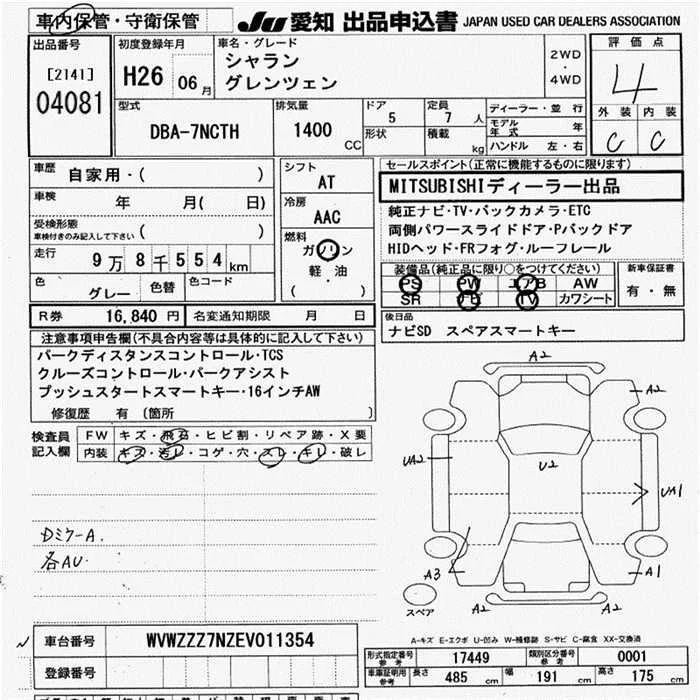 車内保管・守衛保管 JU 愛知 出品申込書 JAPAN USED CAR DEALERS ASSOCIATION
出品番号 初度登録年月 車名・グレード 評価点
[2141] H26 06月 シャラン 2WD・4WD 4
04081 グレンツェン
型式 排気量 ドア 定員 ディーラー・並行 外装 内装
DBA-7NCTH 1400CC 5 7人 モデル年式 年 C C
形状 積載 kg ハンドル 左・右
車歴 自家用・( ) シフト AT セールスポイント(正常に機能するものに限ります)
車検 年 月( 日) 冷房 AAC MITSUBISHIディーラー出品
受検形態 車検付きのみ記入して下さい ( ) 純正ナビ・TV・バックカメラ・ETC
燃料 ガソリン 軽・油 ( ) 両側パワースライドドア・Pバックドア
走行 9万8千554km HIDヘッド・FRフォグ・ルーフレール
色 グレー 色替 色コード 装備品(純正品に限り○をつけてください) 新車保証書
PS PW エアB AW 有・無
SR ナビ TV カワシート
R券 16,840円 名変通知期限 月 日 後日品
ナビSD スペアスマートキー
注意事項申告欄(不具合内容等は具体的に記入して下さい)
パークディスタンスコントロール・TCS
クルーズコントロール・パークアシスト
プッシュスタートスマートキー・16インチAW
修復歴 有 (箇所 )
検査員記入欄 FW キズ・飛石・ヒビ割・リペア跡・X要
内装 キズ・汚レ・コゲ・穴・スレ・キレ・破レ
A2
A2
UA2 U2 UA1
Dミラー A.
各AU.
A3 A1
スペア A2 A2
A-キズ E-エクボ U-凹み W-補修跡 S-サビ C-腐食 XX-交換済
車台番号 WVWZZZ7NZEV011354
登録番号
形式指定番号 参考 17449 類別区分番号 参考 0001
車庫証明用 参考 長さ 485cm 幅 191cm 高さ 175cm